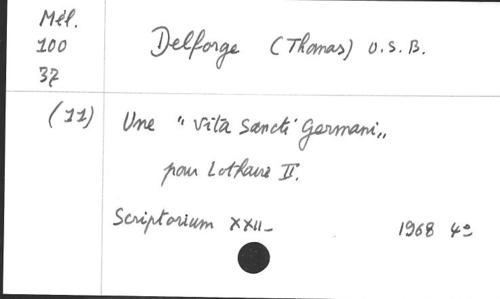 Mél.
100
37
Delforge (Thomas) O.S.B.
(11)
Une "Vita Sancti Germani„
pour Lothaire II.
Scriptorium XXII_
1968 4º